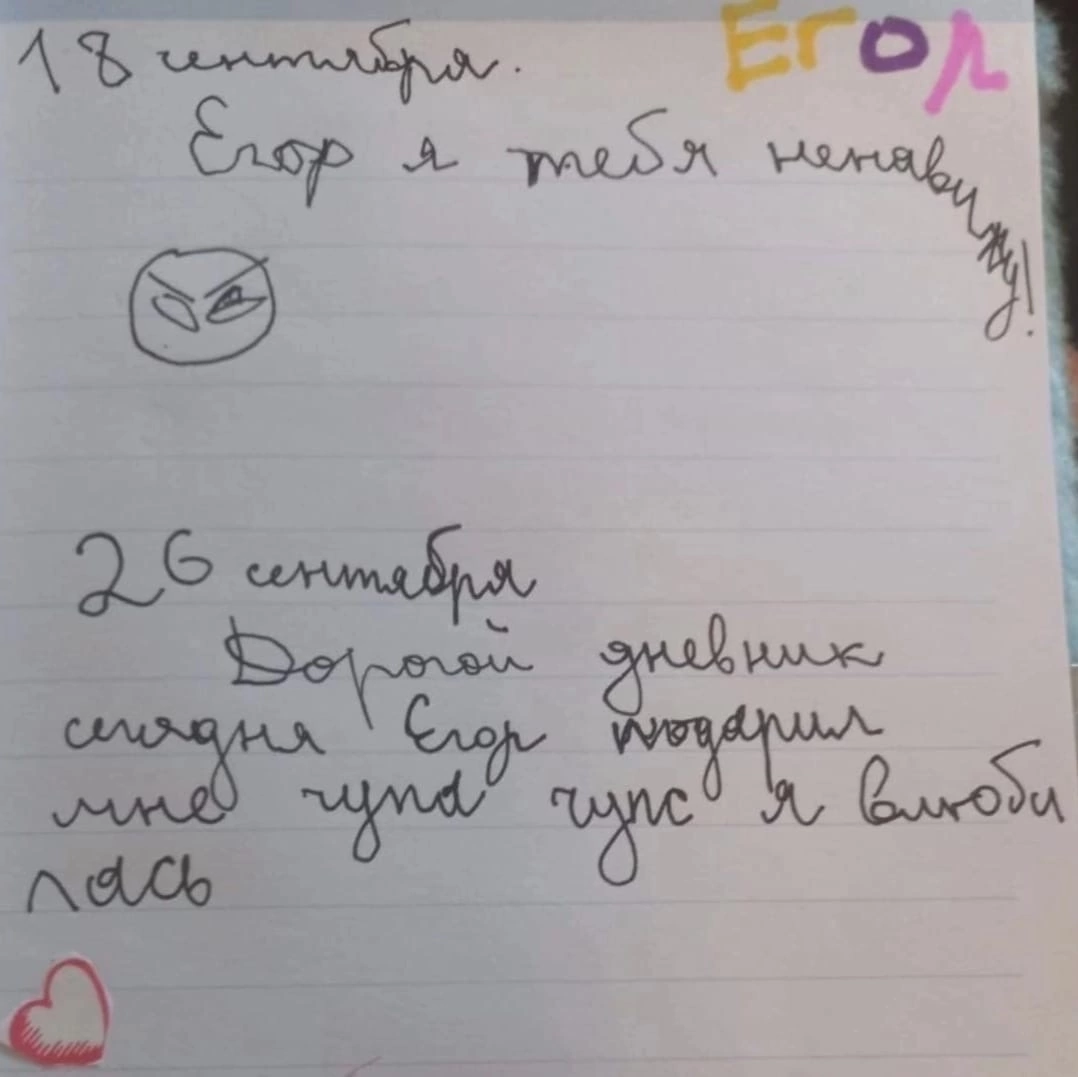 18 сентября.
Егор
Егор я тебя ненавижу!
26 сентября
Дорогой дневник
сегодня Егор подарил
мне чупа чупс я влюби
лась